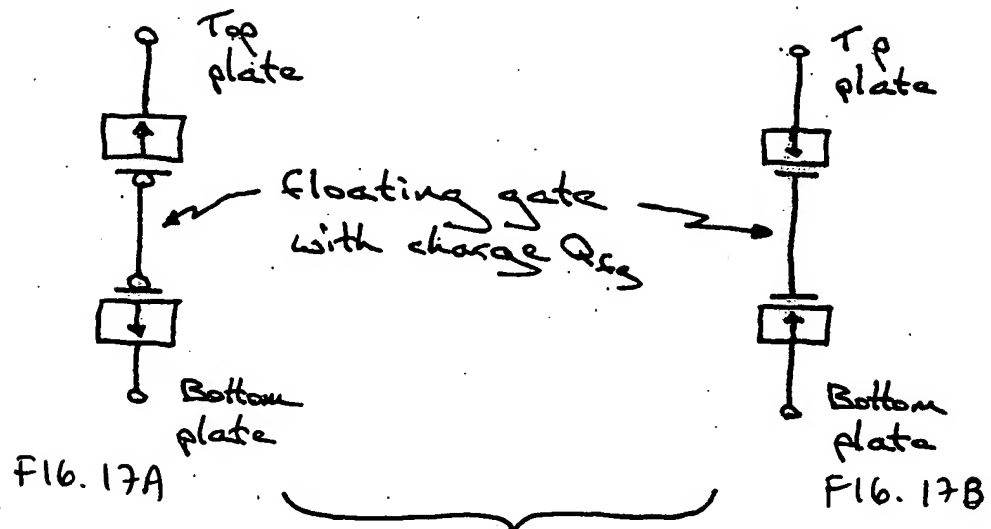 Top
plate
Tp
plate
floating gate
with charge Qfg
Bottom
plate
FIG. 17A
Bottom
plate
FIG. 17B